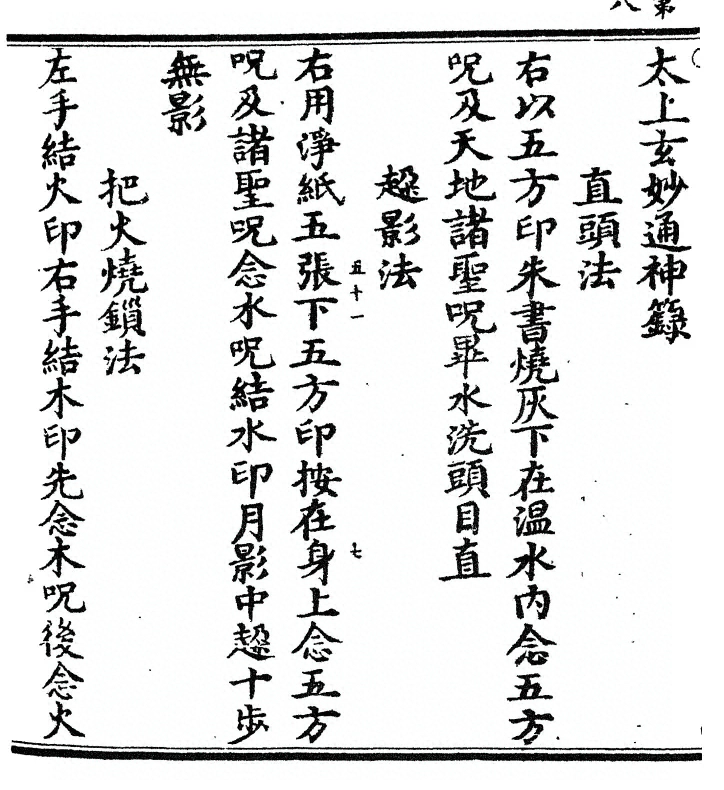 太上玄妙通神錄
直頭法
右以五方印朱書燒灰下在溫水內念五方
呪及天地諸聖呪畢水洗頭目直
趂影法
右用淨紙五張下五方印按在身上念五方
呪及諸聖呪念水呪結水印月影中趂十步
無影
把火燒鎖法
左手結火印右手結木印先念木呪後念火
五十一
七
第
八